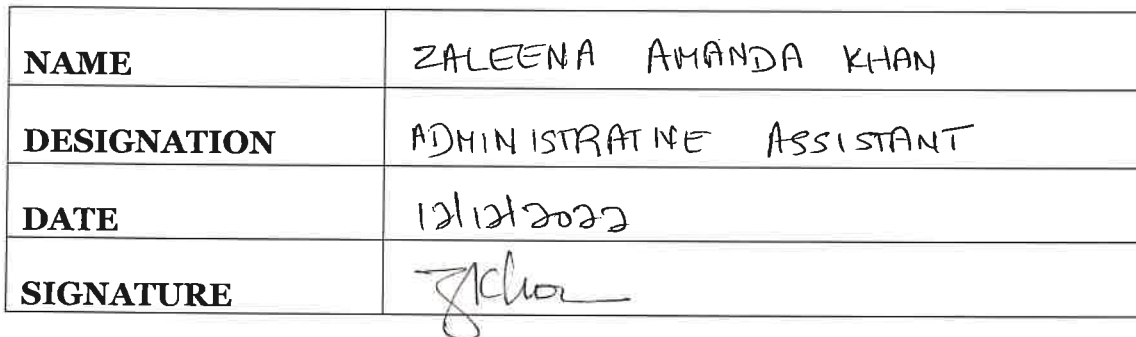 NAME ZALEENA AMANDA KHAN
DESIGNATION ADMINISTRATIVE ASSISTANT
DATE 12/12/2022
SIGNATURE ZKhan